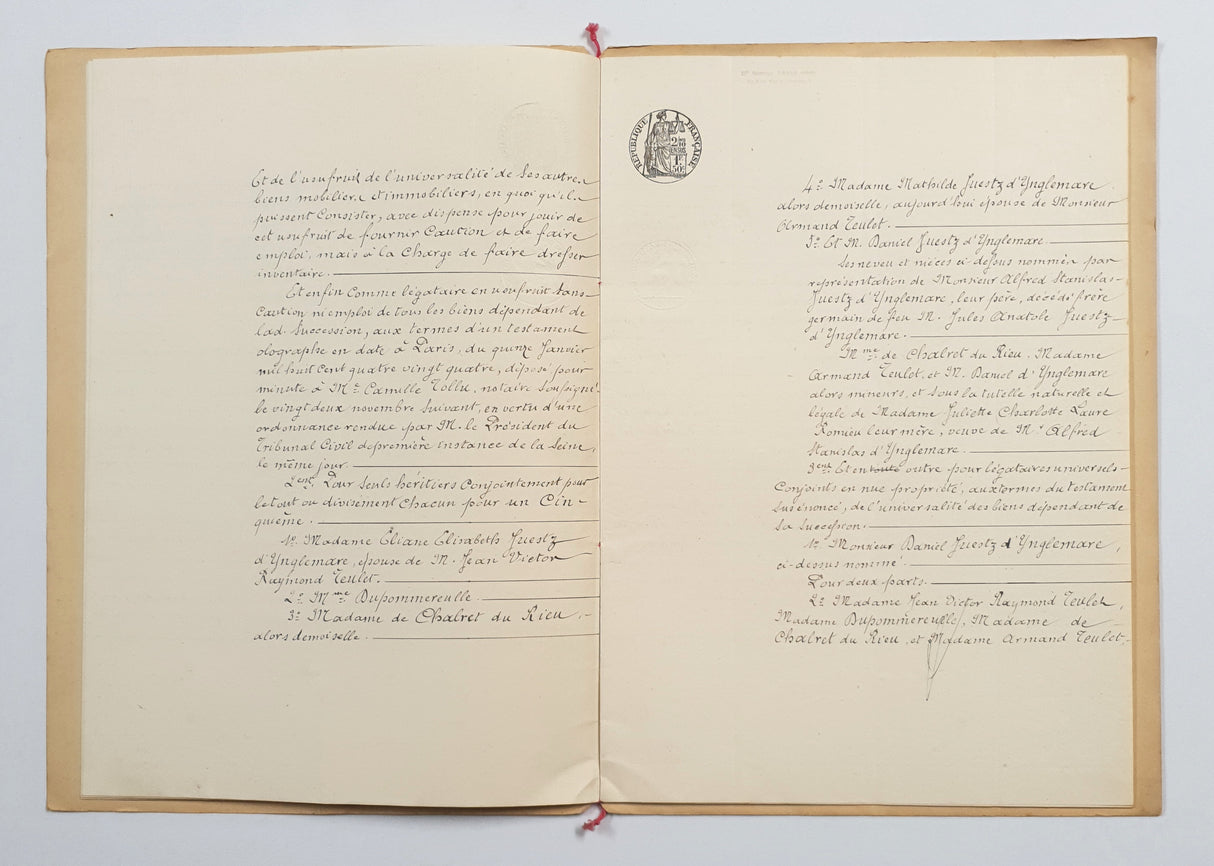 Et de l'usufruit de l'universalité de ses autres
biens mobiliers et immobiliers, en quoi qu'ils
puissent consister, avec dispense pour jouir de
cet usufruit de fournir Caution et de faire
emploi, mais à la Charge de faire dresser
inventaire.
Et enfin comme légataire en usufruit sans
Caution ni emploi de tous les biens dépendant de
lad. Succession, aux termes d'un testament
olographe en date à Paris, du quinze Janvier
mil huit cent quatre vingt quatre, déposé pour
minute à Me Camille Tollu, notaire soussigné
le vingt deux novembre suivant, en vertu d'une
ordonnance rendue par M. le Président du
Tribunal Civil de première instance de la Seine,
le même jour.
2ent. Pour seuls héritiers Conjointement pour
le tout ou divisément Chacun pour un Cin-
quième.
1o. Madame Eliane Elisabeth Juestz
d'Ynglemare, épouse de M. Jean Victor
Raymond Teulet.
2o Mme Dupommereulle.
3o Madame de Chalret du Rieu,
alors demoiselle.
RÉPUBLIQUE FRANÇAISE
2/10
EN SUS
1F.
50c
4o Madame Mathilde Juestz d'Ynglemare
alors demoiselle, aujourd'hui épouse de Monsieur
Armand Teulet.
5o Et M. Daniel Juestz d'Ynglemare.
Ses neveu et nièces ci-dessus nommés par
représentation de Monsieur Alfred Stanislas
Juestz d'Ynglemare, leur père, décédé frère
germain de feu M. Jules Anatole Juestz
d'Ynglemare.
Mme de Chalret du Rieu. Madame
Armand Teulet, et M. Daniel d'Ynglemare
alors mineurs, et sous la tutelle naturelle et
légale de Madame Juliette Charlotte Laure
Romieu leur mère, veuve de Mr Alfred
Stanislas d'Ynglemare.
3ent Et en toute outre pour légataires universels
Conjoints en nue propriété, aux termes du testament
susénoncé, de l'universalité des biens dépendant de
sa succession.
1o Monsieur Daniel Juestz d'Ynglemare,
ci-dessus nommé.
Pour deux parts.
2o Madame Jean Victor Raymond Teulet,
Madame Dupommereulle, Madame de
Chalret du Rieu, et Madame Armand Teulet,